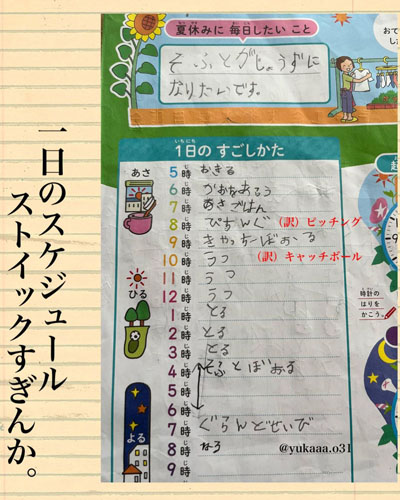 夏休みに 毎日したい こと
そふとがじょうずに
なりたいです。
いちにち
1日の すごしかた
あさ
5時 おきる
6時 かおをあらう
7時 あさごはん
8時 ぴちんぐ (訳)ピッチング
9時 きゃっちーぼおる
10時 うつ (訳)キャッチボール
11時 うつ
ひる
12時 うつ
1時 とる
2時 とる
3時 とる
4時 そふとぼおる
5時
6時
7時 ぐらんどせいび
よる
8時 ねる
9時
時計の
はりを
かこう。
@yukaaa.o31
一日のスケジュール
ストイックすぎんか。